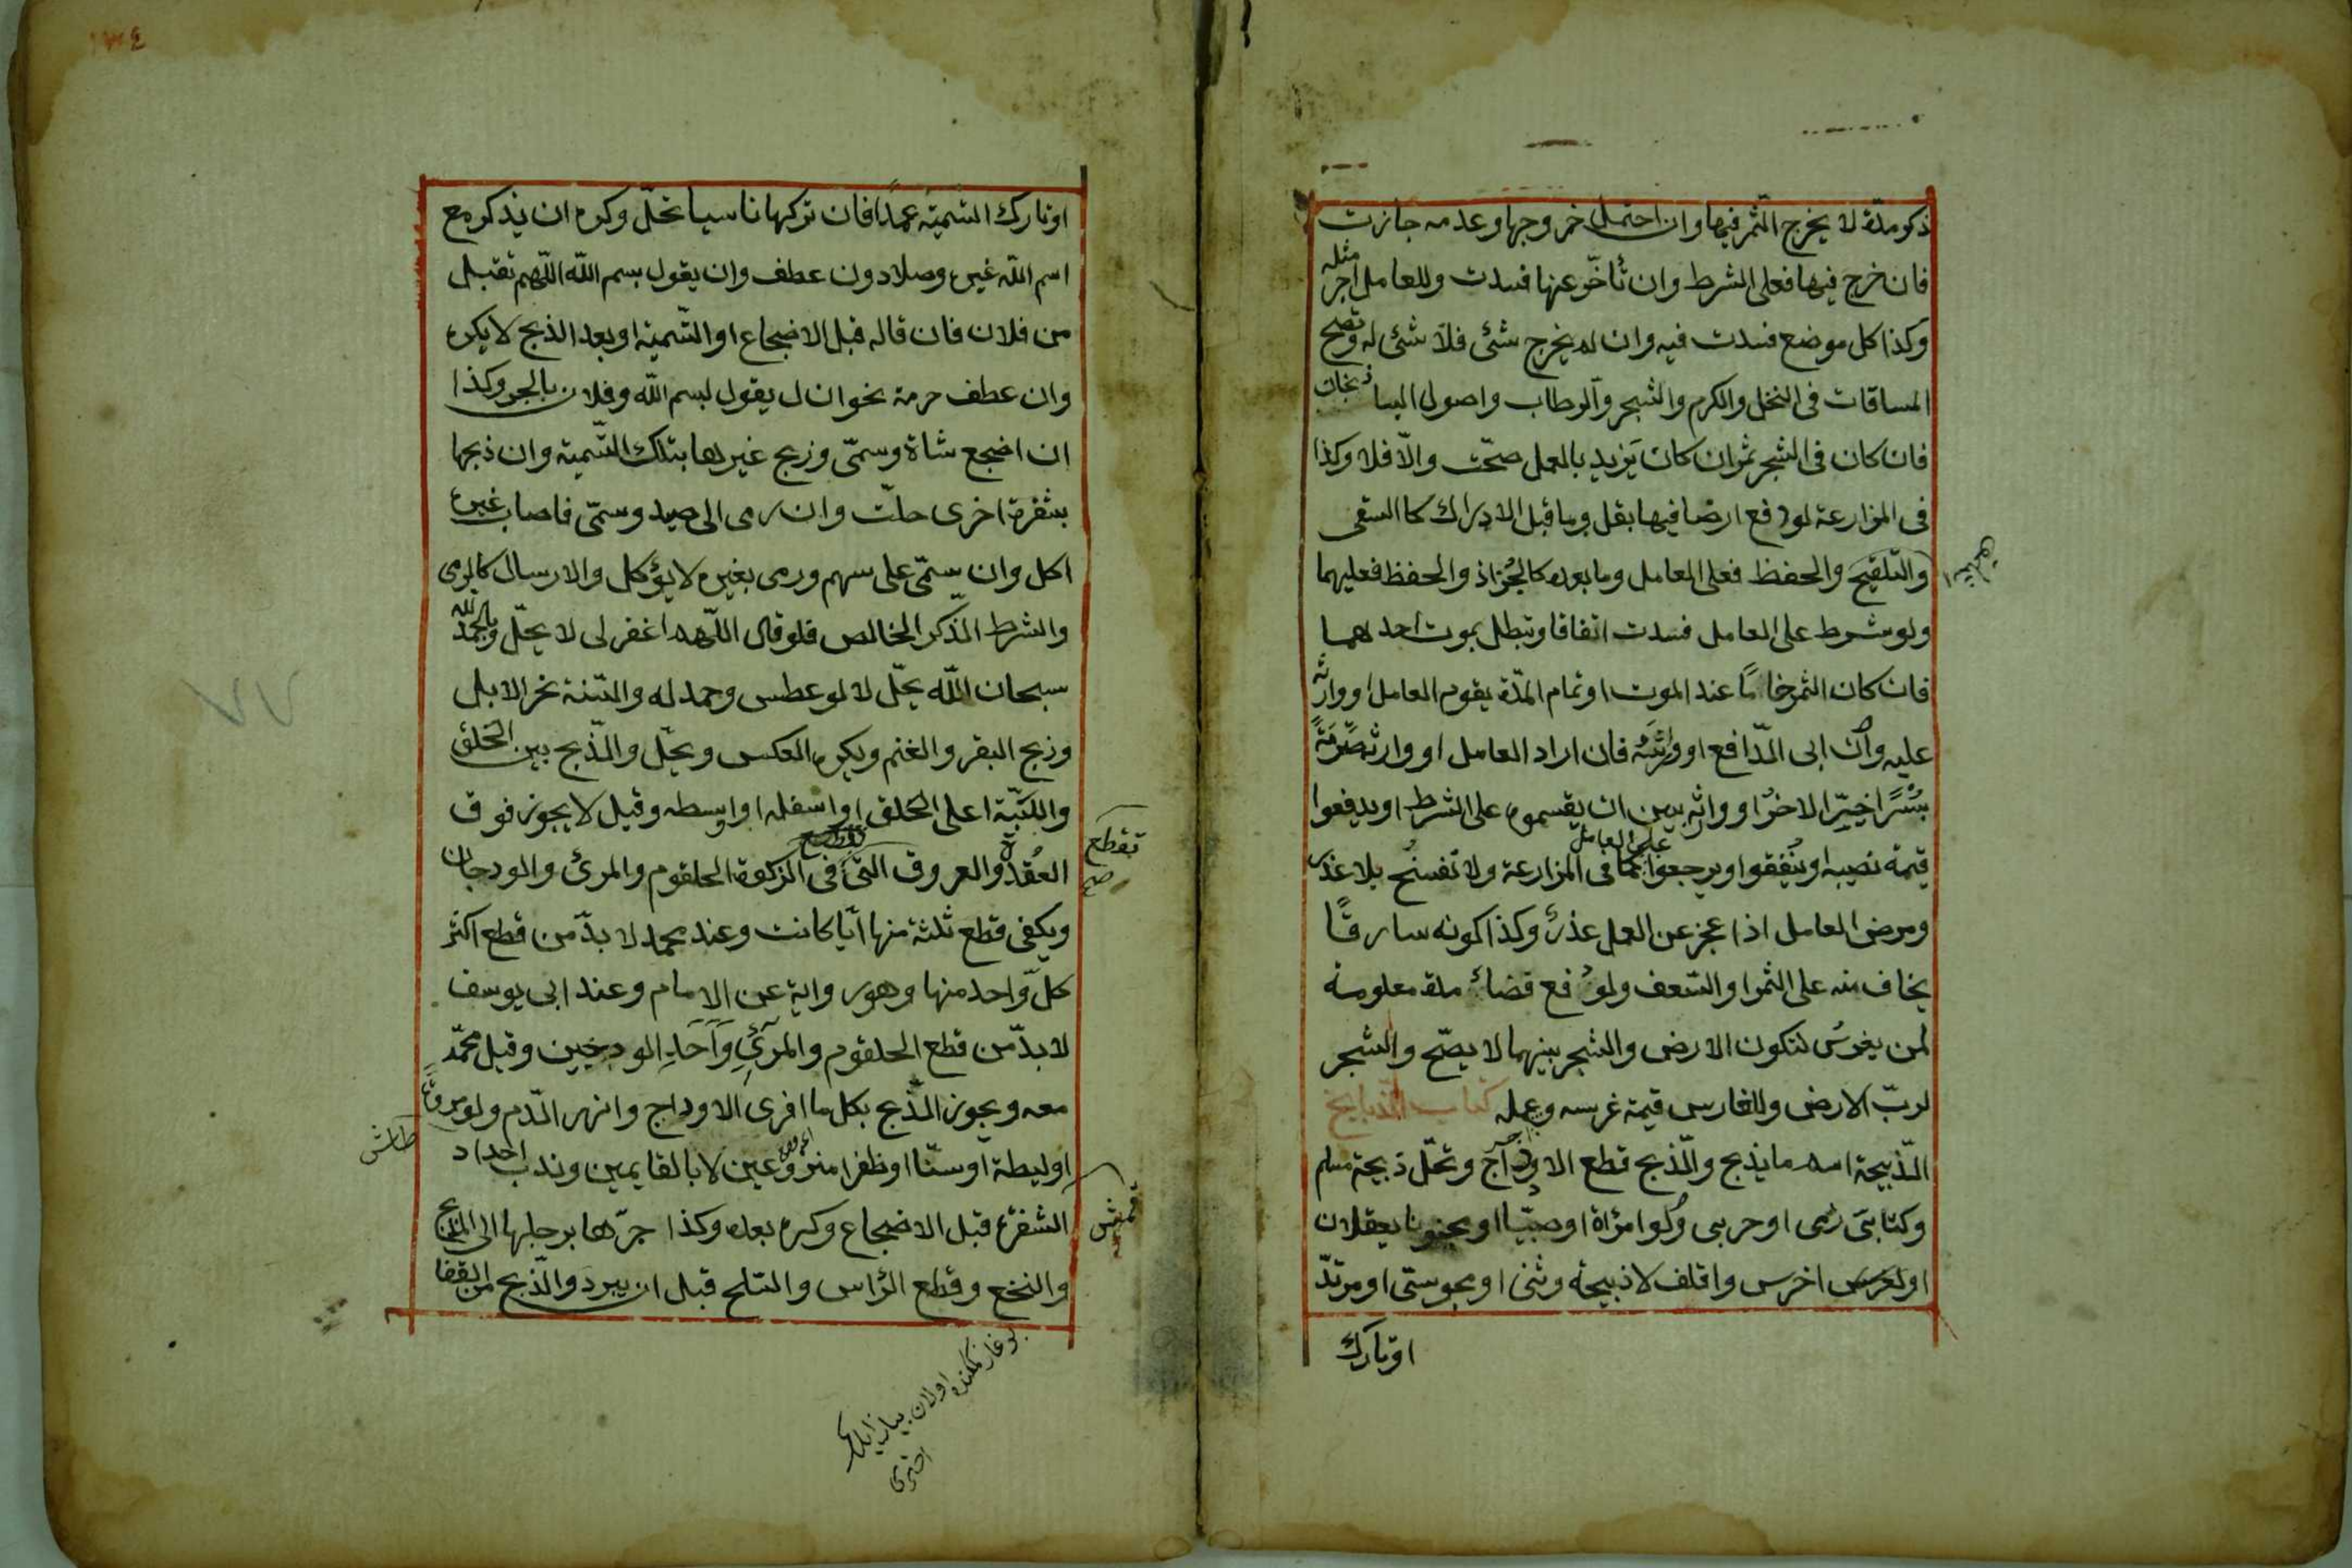 ذكر مدة لا يخرج الثمر فيها وان احتمل خروجها وعدمه جازت
فان خرج فيها فعلى الشرط وان تأخّر عنها فسدت وللعامل اجر مثله
وكذا كل موضع فسدت فيه وان لم يخرج شئ فلا شئ له وتصح
المساقات فى النخل والكرم والشجر والرطاب واصول الباذنجان
فان كان فى الشجر ثمر ان كان يَزيد بالعمل صحّت والّا فلا وكذا
فى المزارعة لو دفع ارضا فيها بقل وما قبل الادراك كالسقى
والتلقيح والحفظ فعلى العامل وما بعده كالجُزاذ والحفظ فعليهما
ولو شرط على العامل فسدت اتفاقا وتبطل بموت احدهما
فان كان الثمر خاماً عند الموت او تمام المدّة يقوم العامل او وارثه
عليه وان ابى الدّافع او ورثته فان اراد العامل او وارثه صَرْمَهُ
بُسْرًا خيّر الاخر او وارثه بين ان يقسموه على الشرط او يدفعوا
قيمة نصيبه او يُنفقوا ويرجعوا على العامل كما فى المزارعة ولا تفسخُ بلا عذر
ومرض العامل اذا عجز عن العمل عذرٌ وكذا كونه سارقًا
يخاف منه على الثمر او السّعف ولو دفع فضاءً مدة معلومة
لمن يغرسُ لتكون الارض والشجر بينهما لا يصّح والشجر
لربّ الارض وللغارس قيمة غرسه وعمله كتاب الذبايح
الذّبيحة اسم ما يذبح والذّبح قطع الاوداج وتحلّ ذبيحة مسلم
وكتابىَ ذمى او حربى ولو امرأة او صبيّا او مجنونا يعقلان
او اخرس واقلف لا ذبيحة وثنى او مجوسىّ او مرتدّ
او تارك
او تارك التسمية عمدًا فان تركها ناسيا تحلّ وكره ان يذكر مع
اسم اللّه غيره وصلا دون عطف وان يقول بسم اللّه اللّهم تقبل
من فلان فان قاله قبل الاضجاع او التّسمية او بعد الذبح لا يكره
وان عطف حرمة نحو ان ل يقول لبسم اللّه وفلان بالجر وكذا
ان اضجع شاة وسمّى وذبح غيرها بتلك التّسمية وان ذبحها
بشفرة اخرى حلّت وان رمى الى صيد وسمّى فاصاب غيره
اكل وان سمّى على سهم ورمى بغيره لا يؤكل والارسال كالرمى
والشرط الذّكر الخالص فلو قال اللّهم اغفر لى لا يحلّ وبالحمد لله
سبحان اللّه يحلّ لا لو عطس وحمد له والسّنة نحر الابل
وذبح البقر والغنم ويكره العكس ويحلّ والذّبح بين الحلق
واللَّبّة اعلى الحلق او اسفله او اوسطه وقيل لا يجوز فوق
العُقدة والعروق التى تقطع فى الزكوة الحلقوم والمرئ والودجان
ويكفى قطع ثلثة منها ايّا كانت وعند محمد لا بدّ من قطع اكثر
كلّ واحد منها وهو رواية عن الامام وعند ابى يوسف
لا بدّ من قطع الحلقوم والمرئِ واَحَدِ الودجين وقيل محمّد
معه ويجوز الذّبح بكل ما افرى الاوداج وانهر الدّم ولو مروة
او ليطة او سنّا او ظفرا منزوعين لا بالقايمين وندب احداد
الشفرة قبل الاضجاع وكره بعده وكذا جرّها برجلها الى المذبح
والنخع وقطع الرّاس والسّلخ قبل ان يبرد والذّبح من القفا
تقطع
صح
قمش
طاش
اولان
اخترى